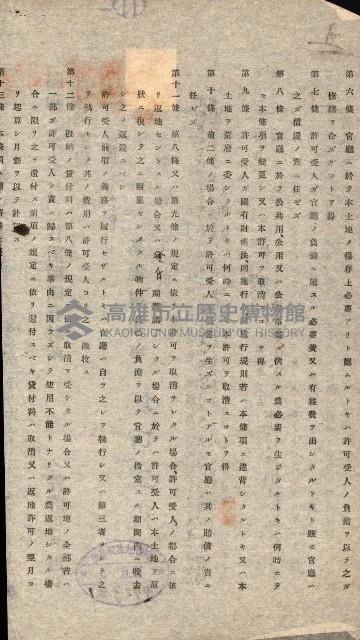 第六條 官廳ニ於テ本土地ノ保存上必要アリト認ムルトキハ許可受人ノ負擔ヲ以テ之ガ
修繕ヲ命ズルコトヲ得
第七條 許可受人ガ官廳ノ負擔ニ屬スル必要費又ハ有益費ヲ出シタルトキト雖モ官廳ハ
之ガ償還ノ責ニ任ゼズ
第八條 官廳ニ於テ公共用、公用又ハ公益事業ニ供スル爲必要ヲ生ジタルトキハ何時ニテ
モ本條項ヲ變更シ又ハ本許可ヲ取消スコトヲ得
第九條 許可受人ガ國有財產法、同施行令、同施行規則若ハ本條項ニ違背シタルトキ又ハ本
土地ヲ荒廢ニ委シタルトキハ何時ニテモ本許可ヲ取消スコトヲ得
第十條 前二條ノ場合ニ於テ許可受人ニ損害ヲ生ズルコトアルモ官廳ハ其ノ賠償ノ責ニ
任ゼズ
第十一條 第八條又ハ第九條ノ規定ニ依リ本許可ヲ取消サレタル場合、許可受人ノ都合ニ依
リ返地セントスル場合又ハ
期間滿了シタル場合ニ於テハ許可受人ハ本土地ヲ原
狀ニ復シ之ニ附屬セシメタル物件ハ自己ノ負擔ヲ以テ官廳ノ指定スル期間內ニ收去
シ之ヲ返還スベシ
許可受人前項ノ義務ヲ履行セザルトキハ官廳ハ自ラ之レヲ執行シ又ハ第三者ヲシテ之
ヲ執行セシメ其ノ費用ハ許可受人ヨリ之ヲ徵收ス
第十二條 旣納ノ貸付料ハ第八條ノ規定ニ依リ取消ヲ受ケタル場合又ハ許可地ノ全部若ハ
一部ガ許可受人ノ責ニ歸スベキ事由ニ因ラズシテ使用不能トナリタル爲返地シタル場
合ニ限リ之ヲ還付ス前項ノ規定ニ依リ還付スベキ貸付料ハ取消又ハ返地許可ノ翌月ヨ
リ起算シ月割ヲ以テ計算ス
高雄市立歷史博物館
KAOHSIUNG MUSEUM OF HISTORY